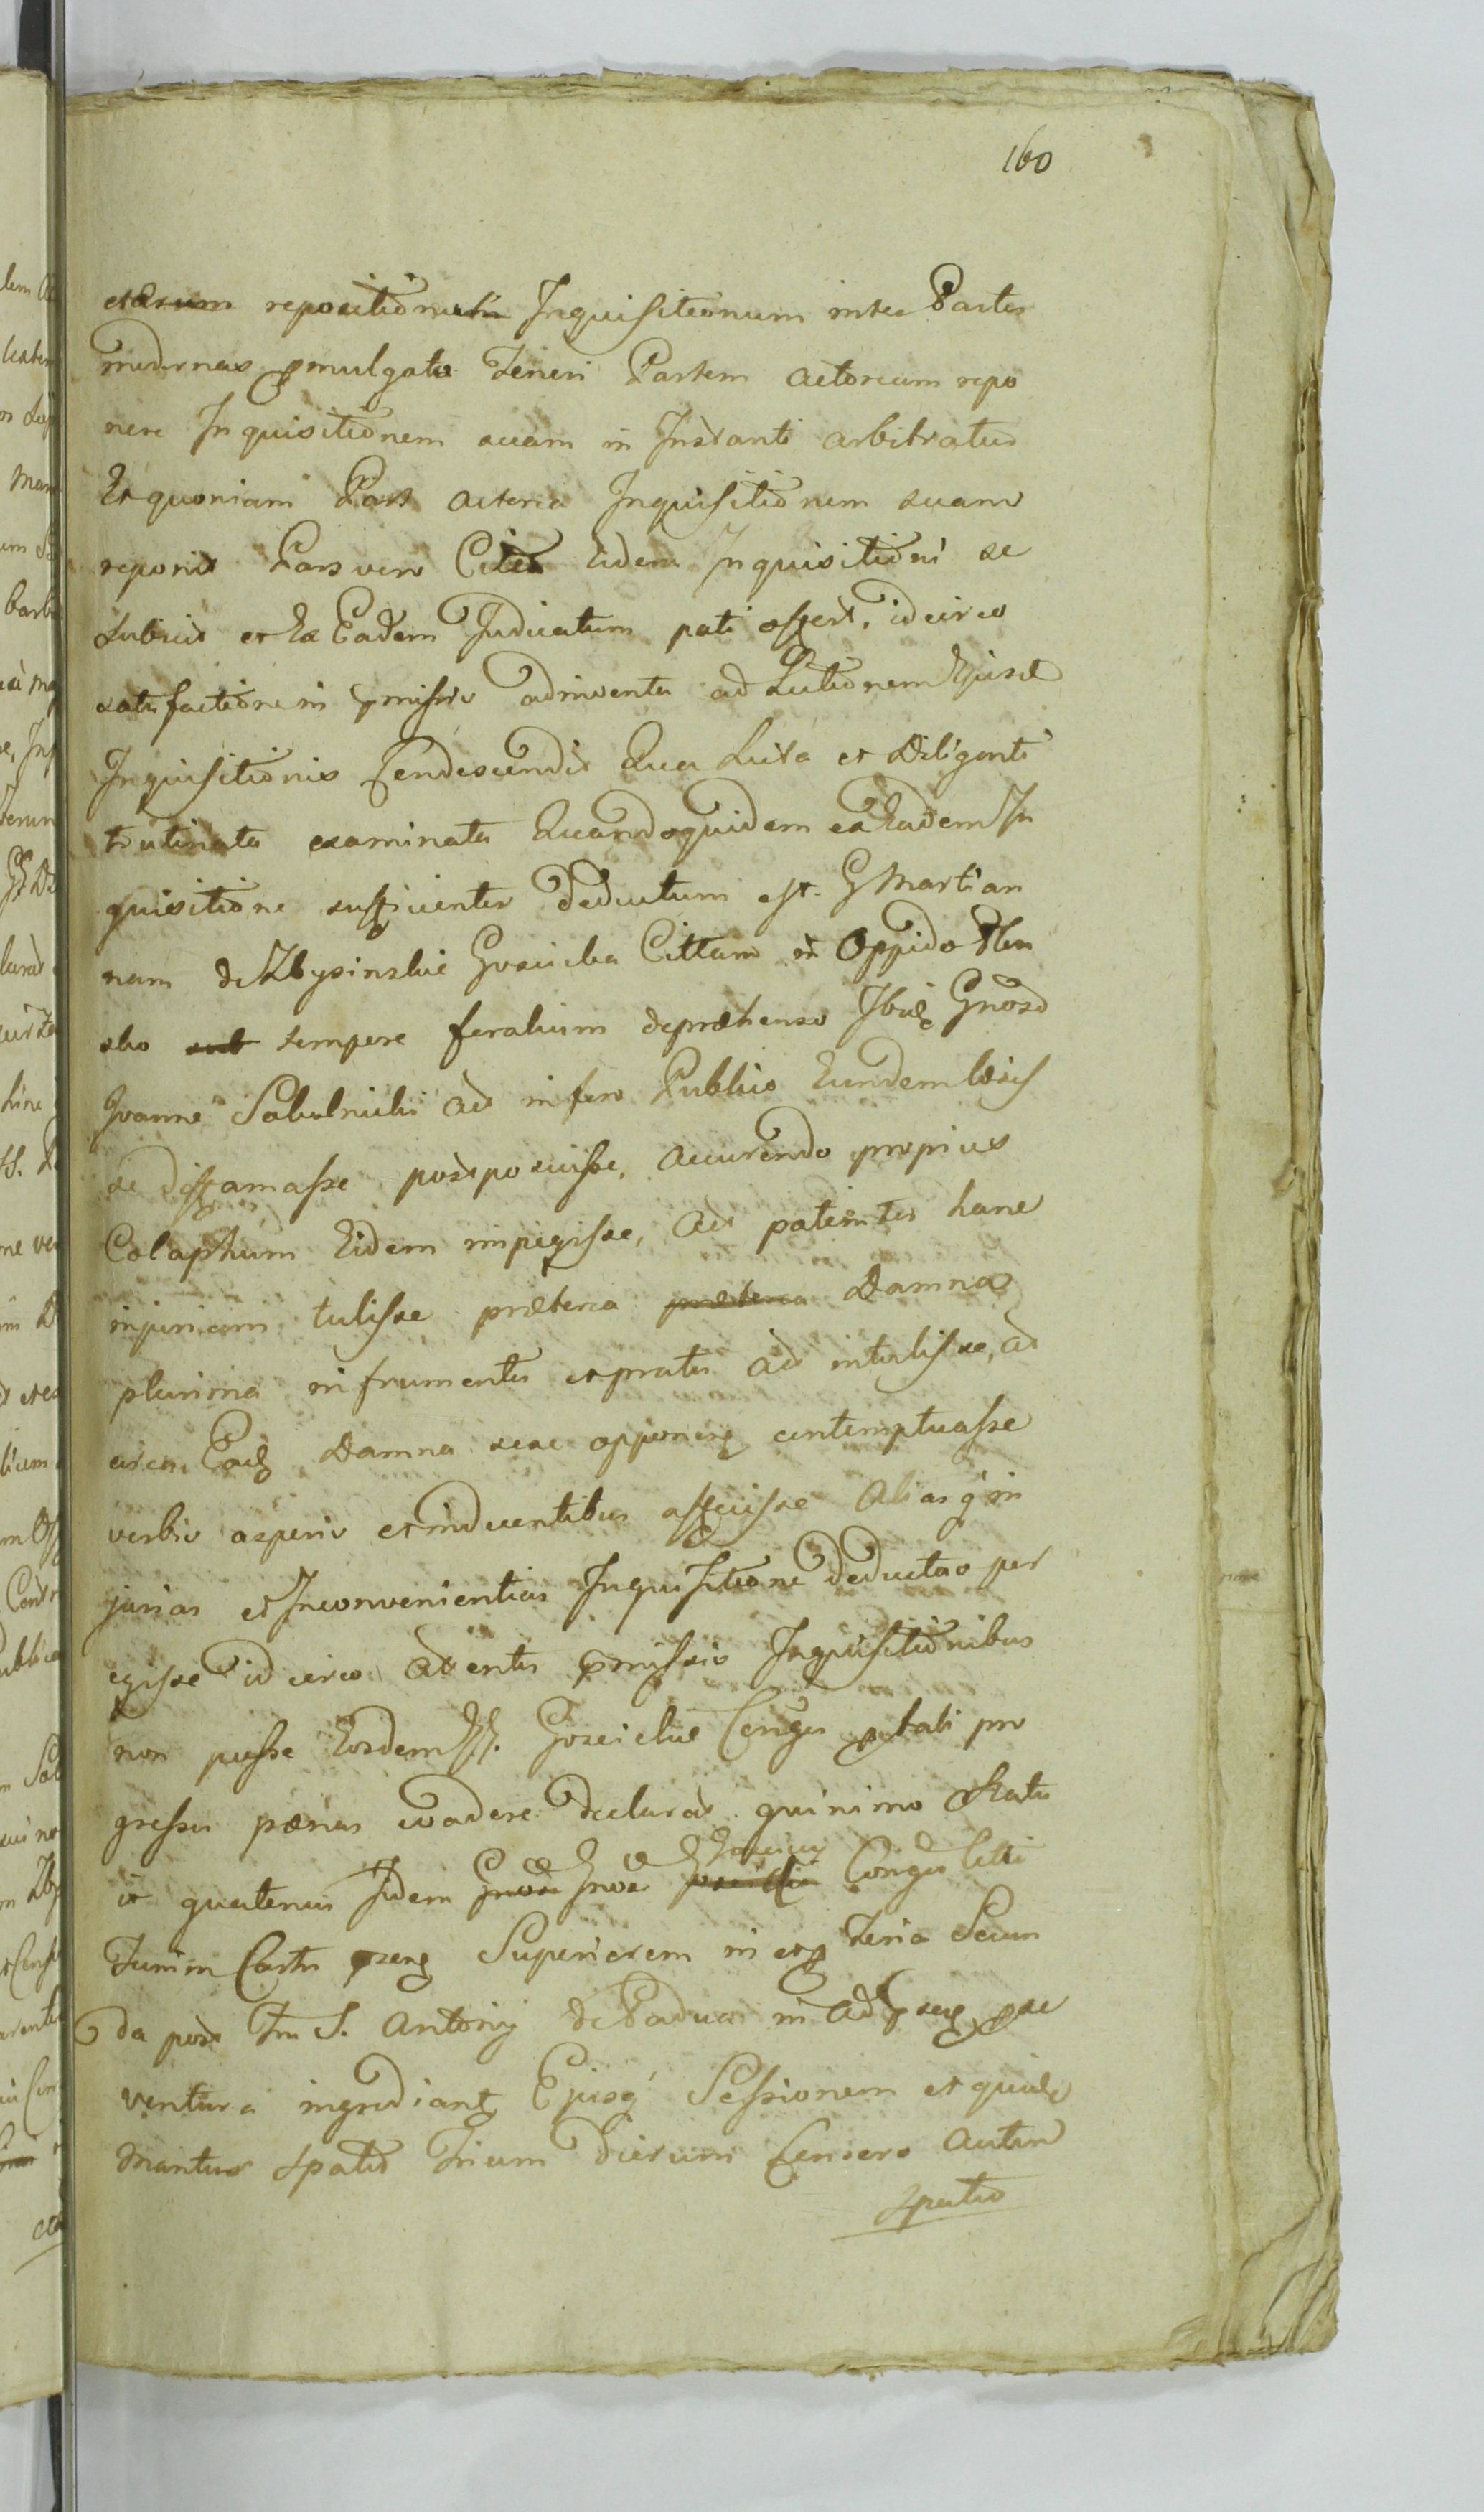 160
earum repositionem Inquisitionum inter Partes
modernas pmulgato teneri Partem actoream repo
nere Inquisitionem suam in Instanti arbitratus
Et quoniam Pars actorea Inquisitionem suam
reponit Pars vero Citta Eidem Inquisitioni se
subiicit et Ex Eadem Judicatum pati offert, idcirco
satisfactione in pmissis adinventa ad Lectionem Ejusd
Inquisitionis Condescendit Qua Lecta et Diligenti
trutinata examinata Quandoquidem ex Eadem In
quisitione sufficienter deductum est. G Martian
nam de Zbysinskie Goscicka Cittam in Oppido
sko tempore feralium deprehenso Ibidq Gnoso
Joanne Sabulnicki Act in foro Publico Eundem
se diffamasse postposuisse, accurendo propius
Colaphum Eidem impegisse, Act patienter hanc
injuriam tulisse præterea præterea Damna
plurima in frumentis et pratis Act intulisse, ad
circa Eadq Damna sese opponenq contemptuasse
verbis asperis et indecentibus affecisse Alias q in
jurias et Inconvenientias Inquisitione deductas per
egisse idcirco Attentis pmissis Inquisitionibus
non posse Eosdem GG. Goscickie Conges p tali pro
gressu pænas evadere declarat quinimo
it quatenus Iidem Gnosi Goscickie Conges Citti
Turrim Castri psenq Superiorem in et p Feria Secun
da post Fm S. Antonij de Padua in Ao psenq pxe
ventura ingrediantq Ejusq Sessionem et quidq
mantus spatio Trium dierum Censero Autem
spatio